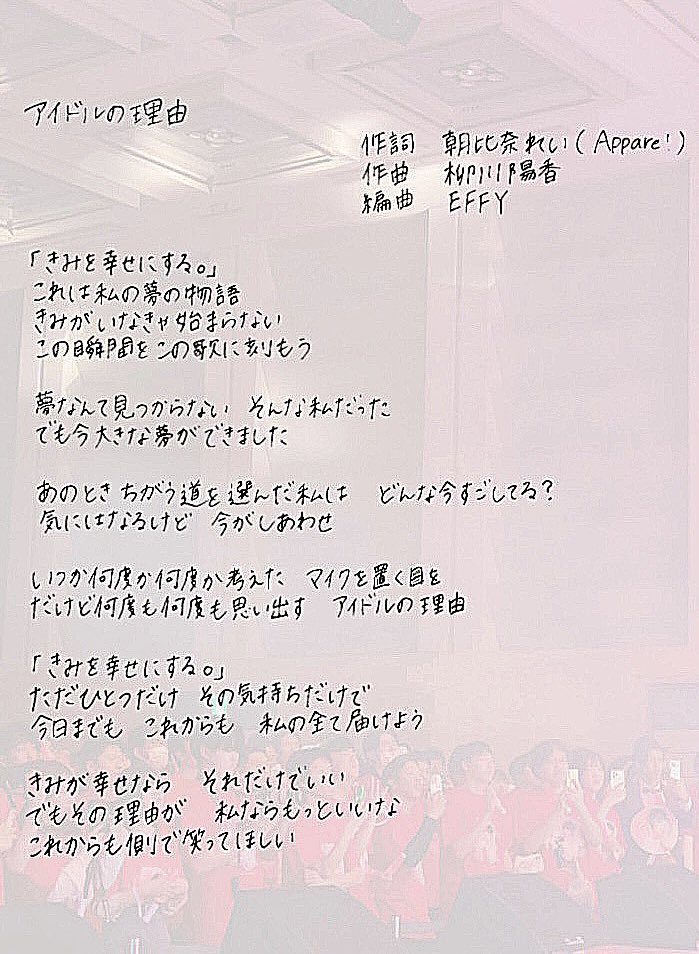 アイドルの理由
作詞　朝比奈れい(Appare!)
作曲　柳川陽香
編曲　EFFY
「きみを幸せにする。」
これは私の夢の物語
きみがいなきゃ始まらない
この瞬間をこの歌に刻もう
夢なんて見つからない　そんな私だった
でも今大きな夢ができました
あのときちがう道を選んだ私は　どんな今すごしてる?
気にはなるけど　今がしあわせ
いつか何度か何度か考えた　マイクを置く日を
だけど何度も何度も思い出す　アイドルの理由
「きみを幸せにする。」
ただひとつだけ　その気持ちだけで
今日までも　これからも　私の全て届けよう
きみが幸せなら　それだけでいい
でもその理由が　私ならもっといいな
これからも側で笑ってほしい